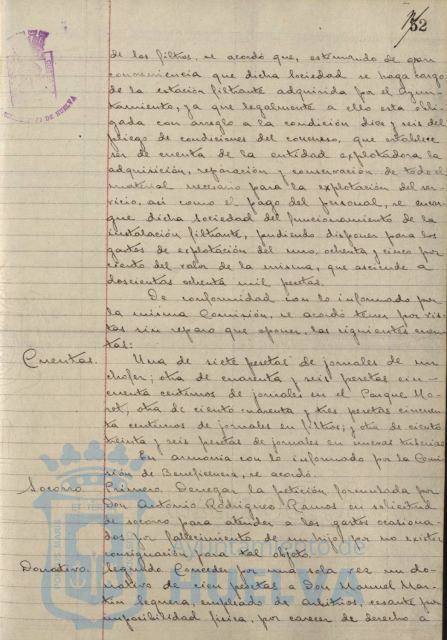 52
de los filtros, se acordó que, estimando de gran
conveniencia que dicha Sociedad se haga cargo
de la estación filtrante adquirida por el Ayun-
tamiento, ya que legalmente a ello esta obli-
gada con arreglo a la condición diez y seis del
pliego de condiciones del concurso, que establece
ser de cuenta de la entidad explotadora la
adquisición, reparación y conservación de todo el
material necesario para la explotación del ser-
vicio, asi como el pago del personal, se encar-
gue dicha Sociedad del funcionamiento de la
instalación filtrante, pudiendo disponer para los
gastos de explotación del uno ochenta y cinco por
ciento del valor de la misma, que asciende a
doscientas ochenta mil pesetas.
De conformidad con lo informado por
la misma Comisión, se acordó tener por vis-
tas sin reparo que oponer, las siguientes cuen-
tas:
Cuentas. Una de siete pesetas de jornales de un
chofer; otra de cuarenta y seis pesetas cin-
cuenta centimos de jornales en el Parque Mo-
ret; otra de ciento cuarenta y tres pesetas cincuen-
ta centimos de jornales en filtros; y otra de ciento
treinta y seis pesetas de jornales en nuevas tuberias
En armonia con lo informado por la Comi-
sión de Beneficencia, se acordó.
Socorro. Primero. Denegar la petición formulada por
Don Antonio Rodriguez Ramos en solicitud
de socorro para atender a los gastos ocasiona-
dos por fallecimiento de un hijo, por no existir
consignación para tal objeto.
Donativo. Segundo. Conceder por una sola vez un do-
nativo de cien pesetas a Don Manuel Mar-
tin Seguera, empleado de Arbitrios, cesante por
imposibilidad fisica, por carecer de derecho a
Ayuntamiento de
HUELVA